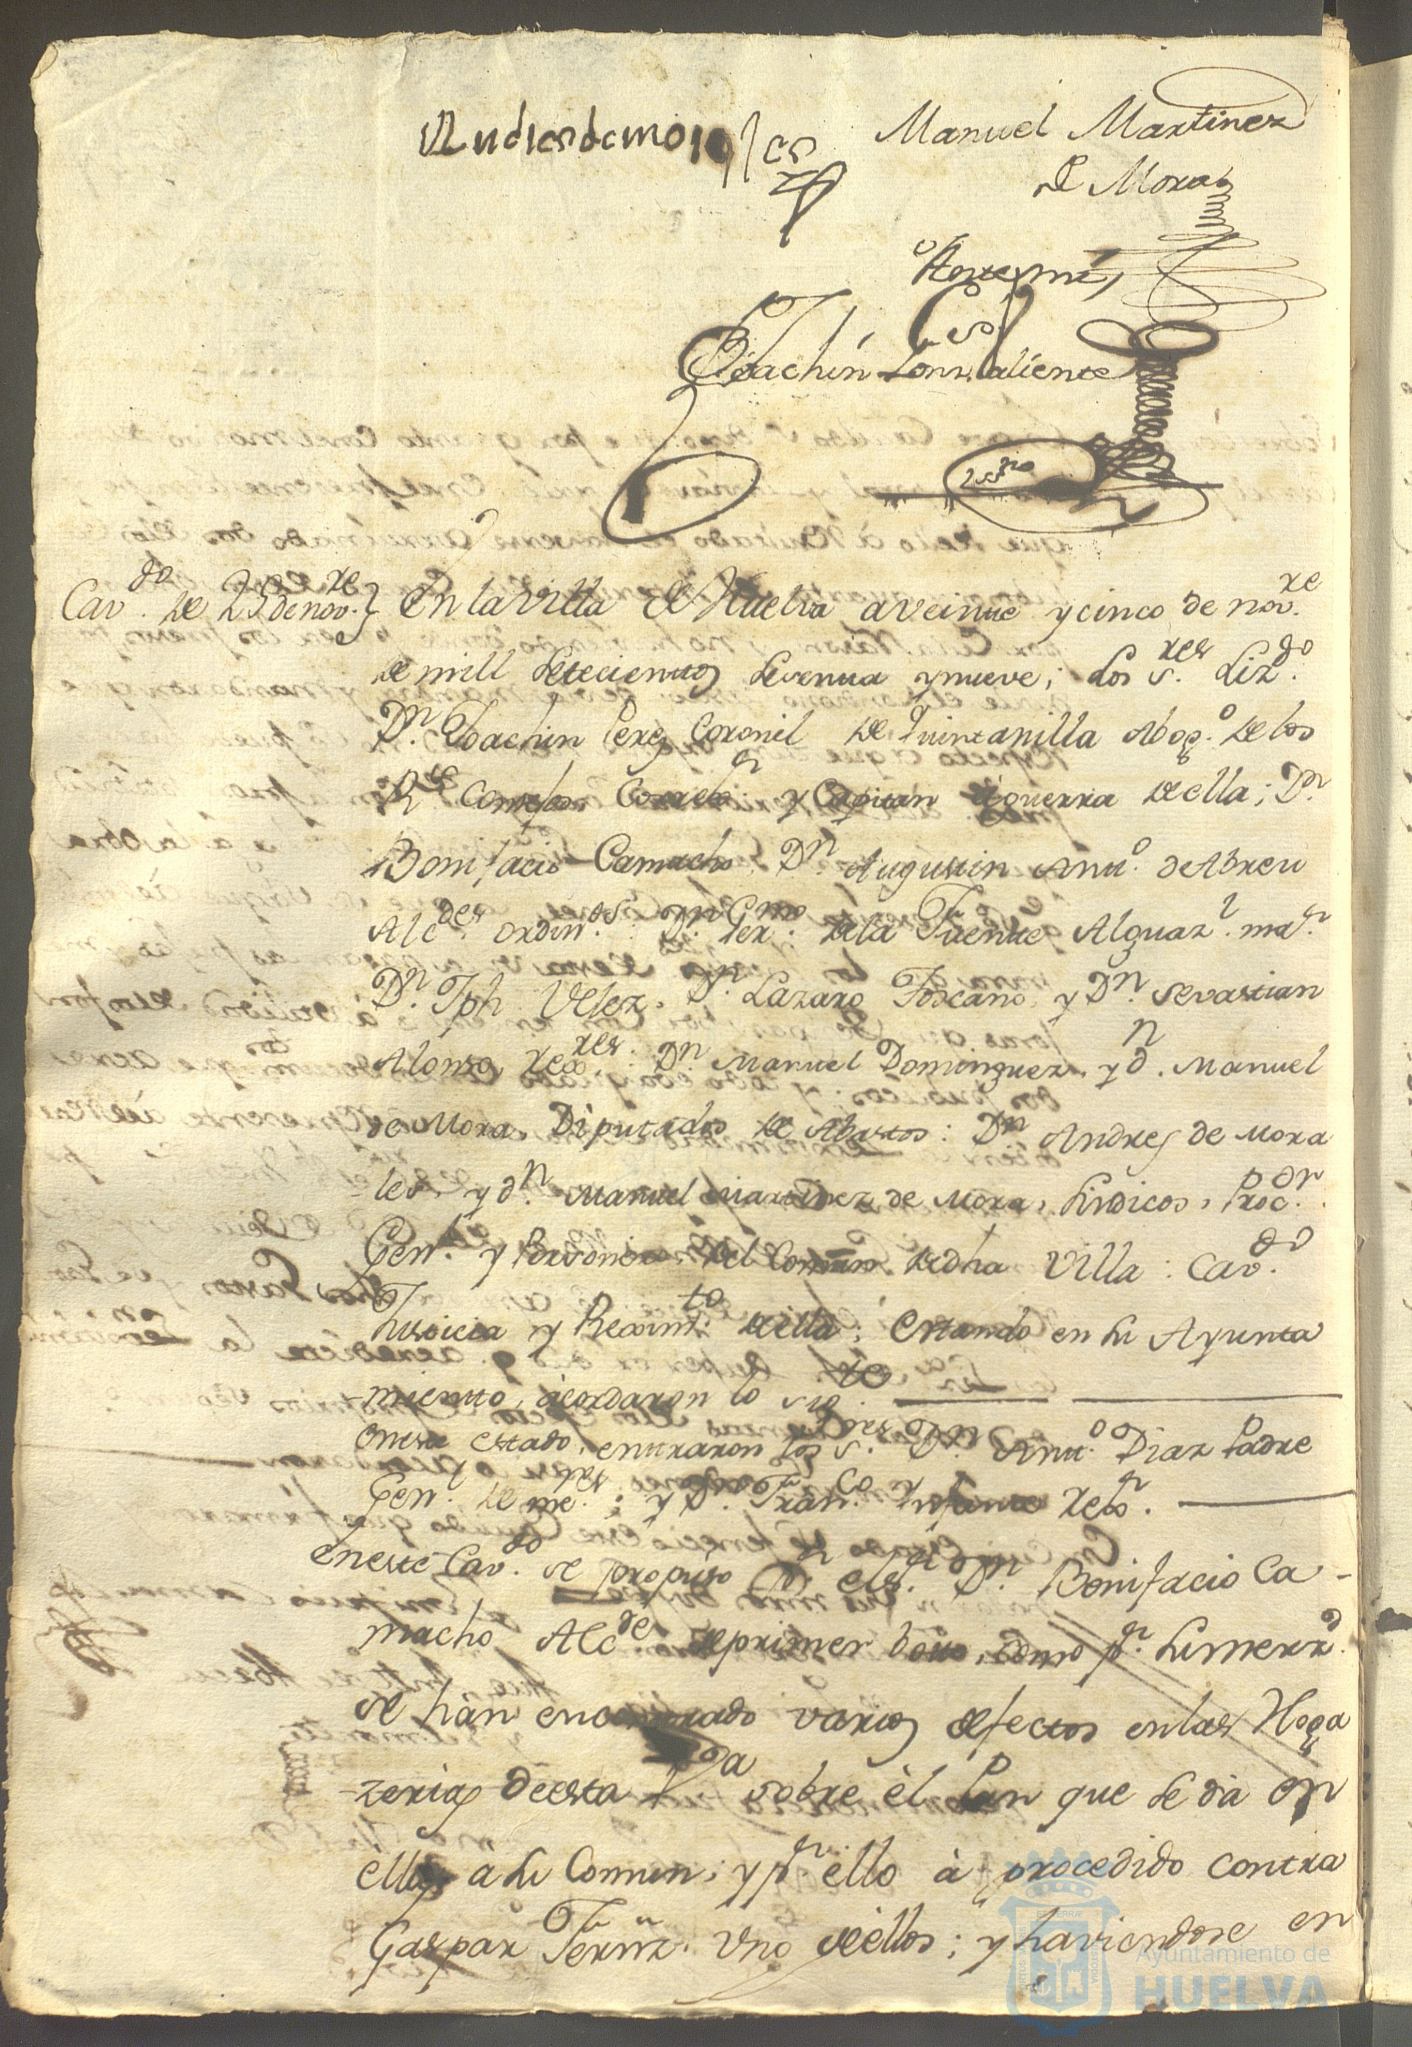 Andres de morales
Manuel Martinez
de Mora
Antemi,
Joachin Gonz. Caliente
Ess.no
Cav.do de 25 de nov.re } en la villa de Huelva a veinte y cinco de nov.re
de mill setecientos setenta y nueve; Los S.res Liz.do
D.n Joachin Perez Coronel de Quintanilla Abog.o de los
R.s Consejos Correx.r y Capitan à guerra de ella; D.n
Bonifacio Camacho, D.n Augustin Ant.o de Abreu
Alc.des ordin.os: D.n Ger.mo de la Fuente Alguaz.l ma.r
D.n Jph Velez, D.n Lazaro Toscano, y D.n Sevastian
Alonso, rex.res: D.n Manuel Dominguez, y d.n Manuel
de Mora, Diputados de Abastos: D.n Andres de Mora
les, y d.n Manuel Martinez de Mora, Sindicos, Proc.or
Gen.l y Personero del Comun de dha Villa: Cav.do
Justicia y Rexim.to de ella; estando en su Ayunta
miento, acordaron lo sig.te
en este estado, entraron los S.res D.n Ant.o Diaz Padre
Gen.l de me.res; y D.n Fran.co Infante rex.r
en este Cav.do se propuso p.r el S.r D.n Bonifacio Ca-
macho Alc.de de primer voto, como p.r su merz.d
se hàn encontrado varios defectos en las Hoga
zerias de esta V.a sobre èl Pan que se dà en
ellas à su Comun; y p.r ello à procedido contra
Gaspar Fernz. uno de ellos; y haviendose en
Ayuntamiento de
HUELVA